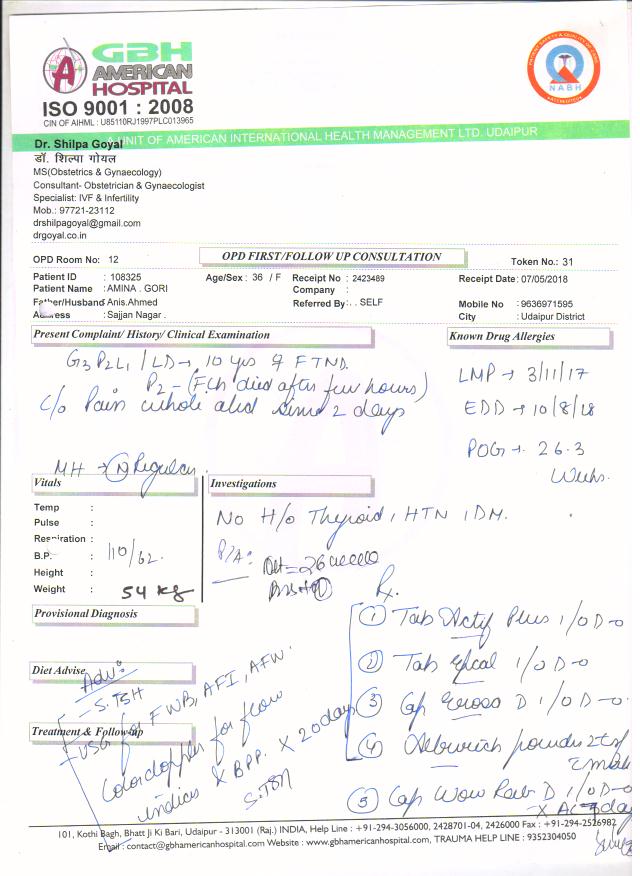 GBH
AMERICAN
HOSPITAL
ISO 9001 : 2008
CIN OF AIHML : U85110RJ1997PLC013965
NABH
A UNIT OF AMERICAN INTERNATIONAL HEALTH MANAGEMENT LTD. UDAIPUR
Dr. Shilpa Goyal
डॉ. शिल्पा गोयल
MS(Obstetrics & Gynaecology)
Consultant- Obstetrician & Gynaecologist
Specialist: IVF & Infertility
Mob.: 97721-23112
drshilpagoyal@gmail.com
drgoyal.co.in
OPD Room No: 12
OPD FIRST/FOLLOW UP CONSULTATION
Token No.: 31
Patient ID : 108325 Age/Sex : 36 / F Receipt No : 2423489 Receipt Date: 07/05/2018
Patient Name : AMINA . GORI Company :
Father/Husband Anis.Ahmed Referred By: . . SELF Mobile No : 9636971595
Address : Sajjan Nagar . City : Udaipur District
Present Complaint/ History/ Clinical Examination
Known Drug Allergies
G3 P2 L1 / LD → 10 yrs FTND.
P2 - (F.Ch died after few hours)
C/o Pain whole abd since 2 days
LMP → 3/11/17
EDD → 10/8/18
POG → 26.3
Weeks.
MH → (N) Regular.
Vitals
Investigations
Temp :
Pulse :
Respiration :
B.P. : 110/62.
Height :
Weight : 54 kg
No H/o Thyroid, HTN, DM.
P/A: Ut = 26 weeks
Provisional Diagnosis
Diet Advise
Treatment & Follow-up
Adv:
- S. TSH
- USG for FWB, AFI, AFW.
Colordoppler for flow
indices & BPP. X 20 days
S. TSH
Rx.
(1) Tab Plus 1/OD
(2) Tab 1/OD
(3) Cap D 1/OD
(4) powder
(5) Cap D 1/OD
101, Kothi Bagh, Bhatt Ji Ki Bari, Udaipur - 313001 (Raj.) INDIA, Help Line : +91-294-3056000, 2428701-04, 2426000 Fax : +91-294-2526982
Email : contact@gbhamericanhospital.com Website : www.gbhamericanhospital.com, TRAUMA HELP LINE : 9352304050